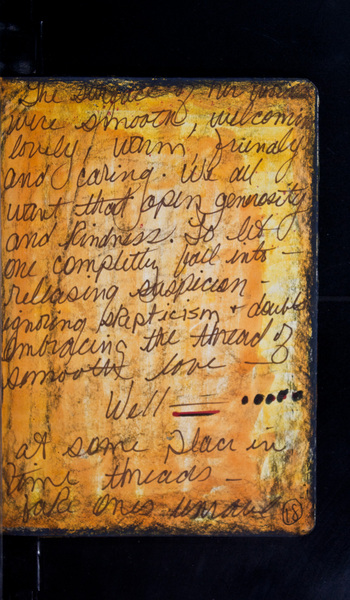 The surface of her
were smooth, welcoming
lovely, warm, friendly
and caring. We all
want that open generosity
and kindness. To let
one completly fall into -
releasing suspicion -
ignoring skepticism + doubt
embracing the thread of
smooth love -
Well
at some place in
time threads -
fake ones unravel
18